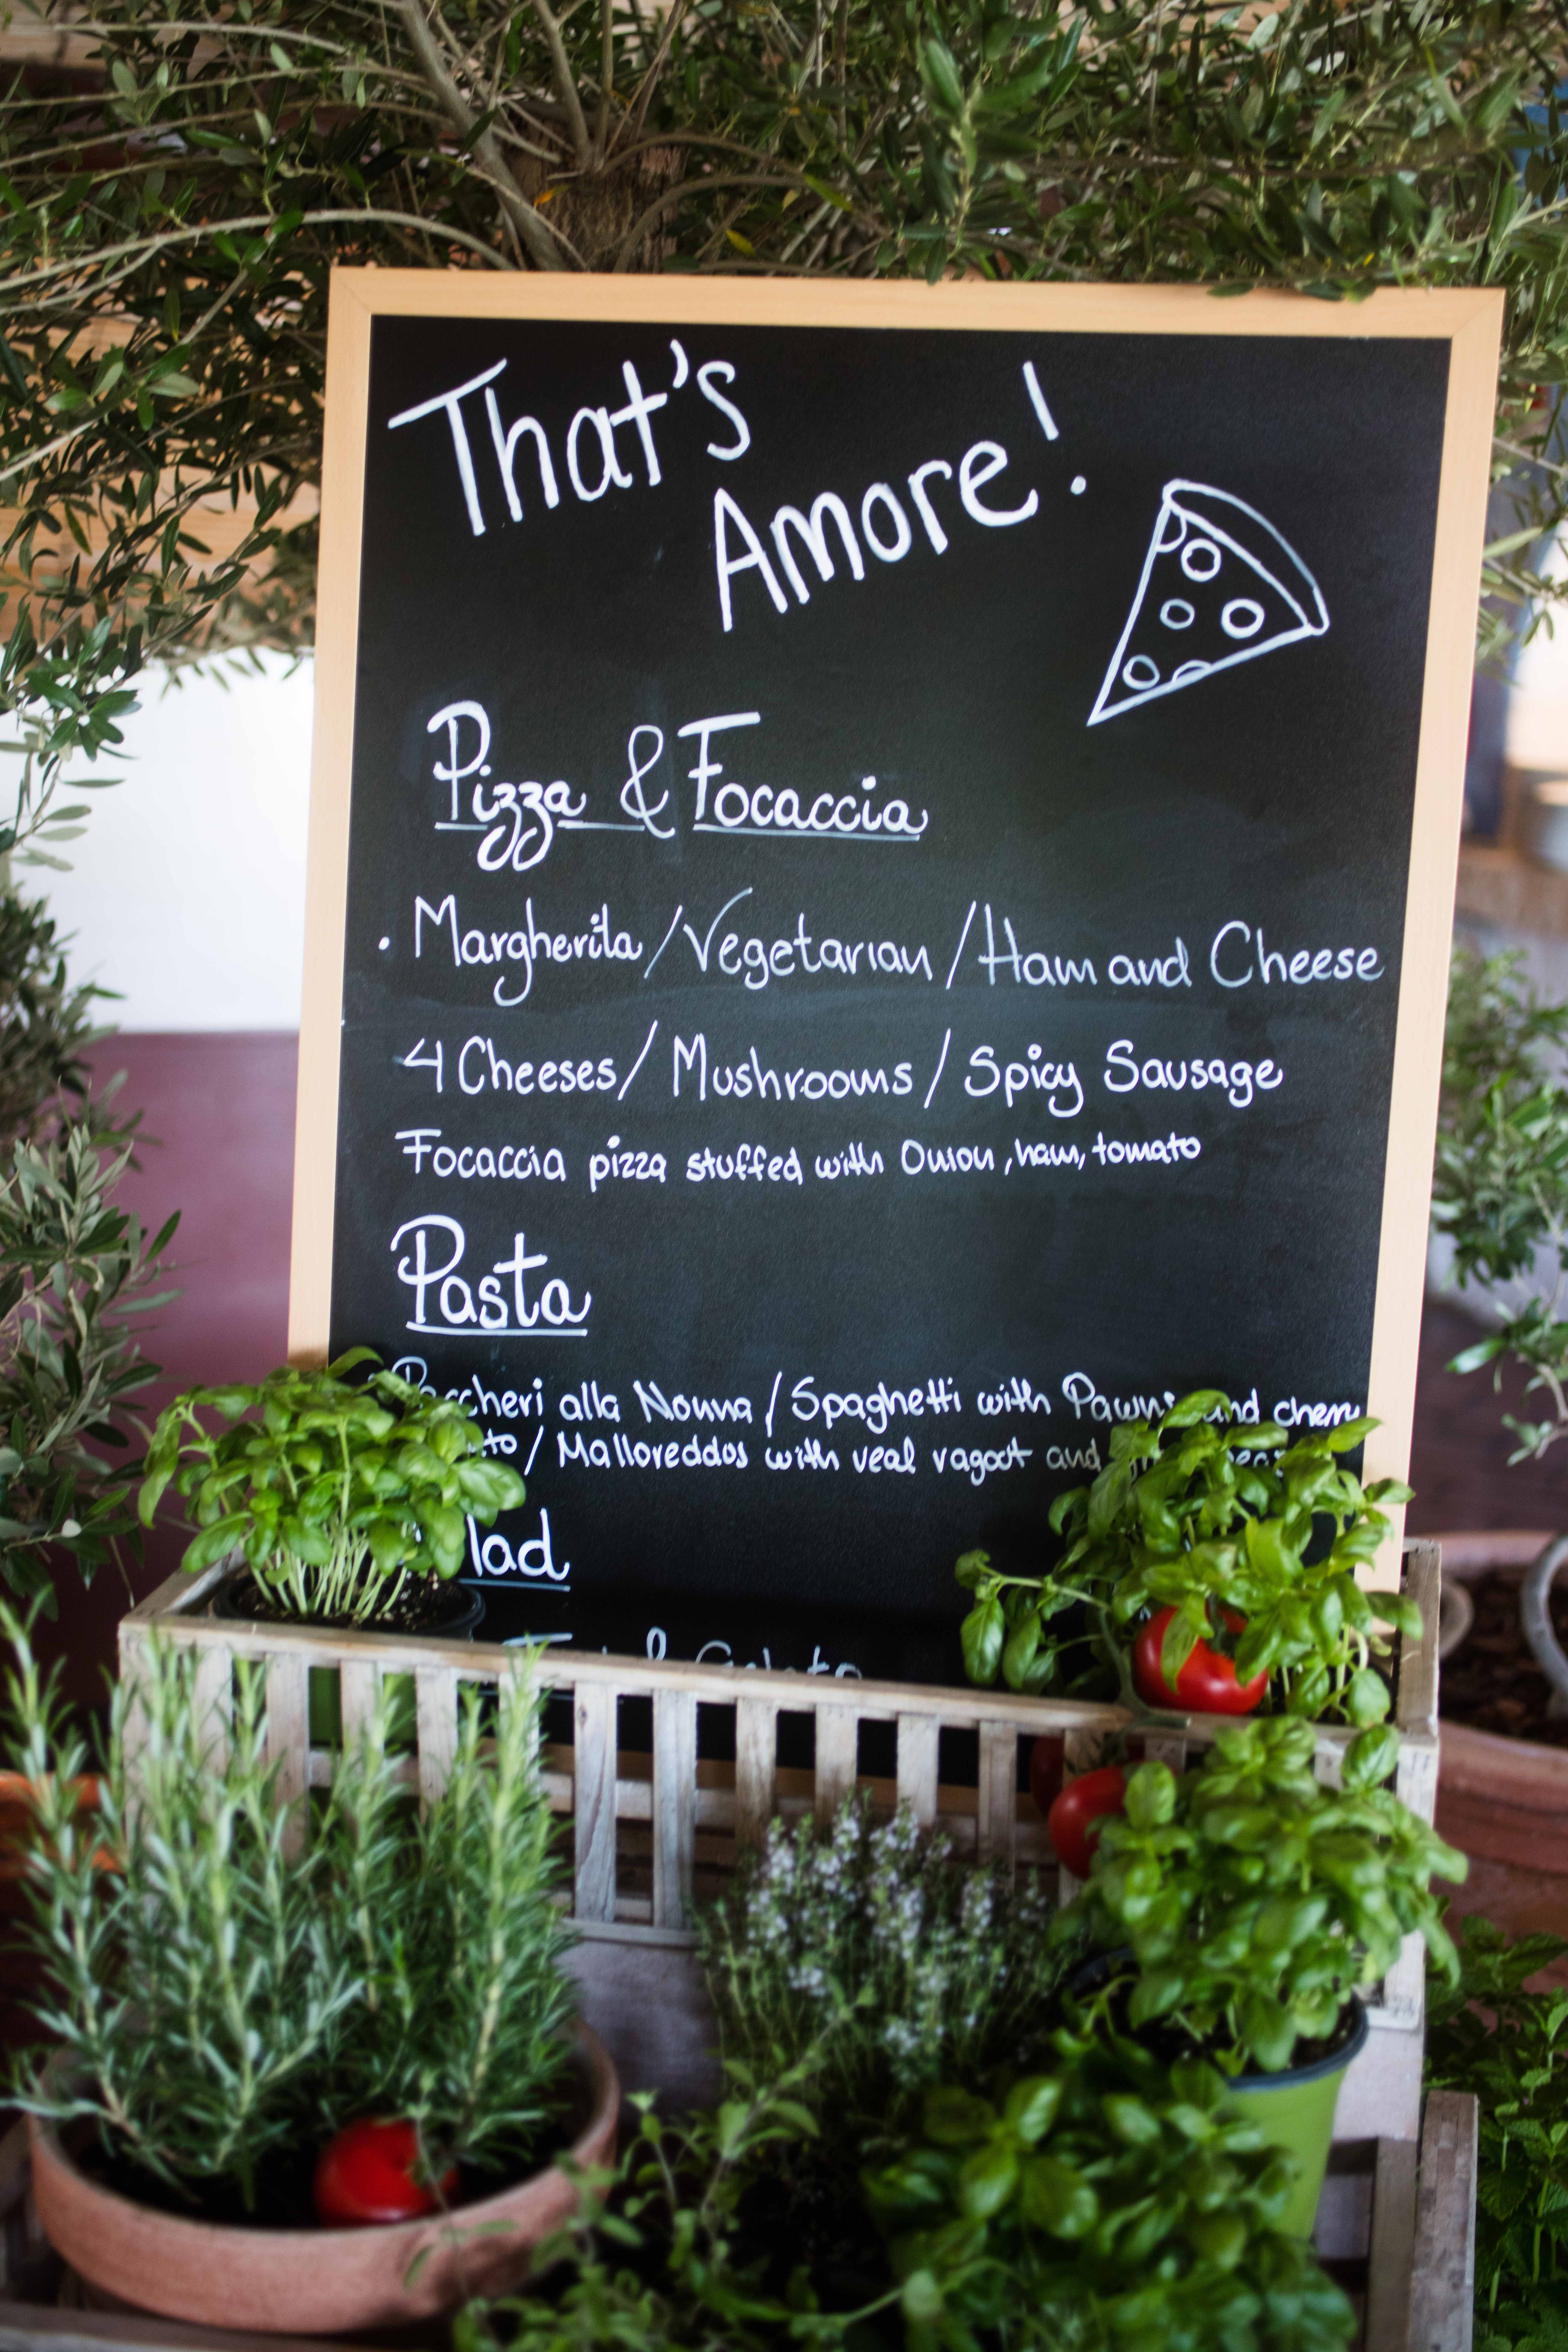 That's
Amore!
Pizza & Focaccia
· Margherita / Vegetarian / Ham and Cheese
4 Cheeses / Mushrooms / Spicy Sausage
Focaccia pizza stuffed with Onion, ham, tomato
Pasta
Paccheri alla Nonna / Spaghetti with Pawns and cherry
/ Malloreddos with veal ragout and
lad
& Gelato